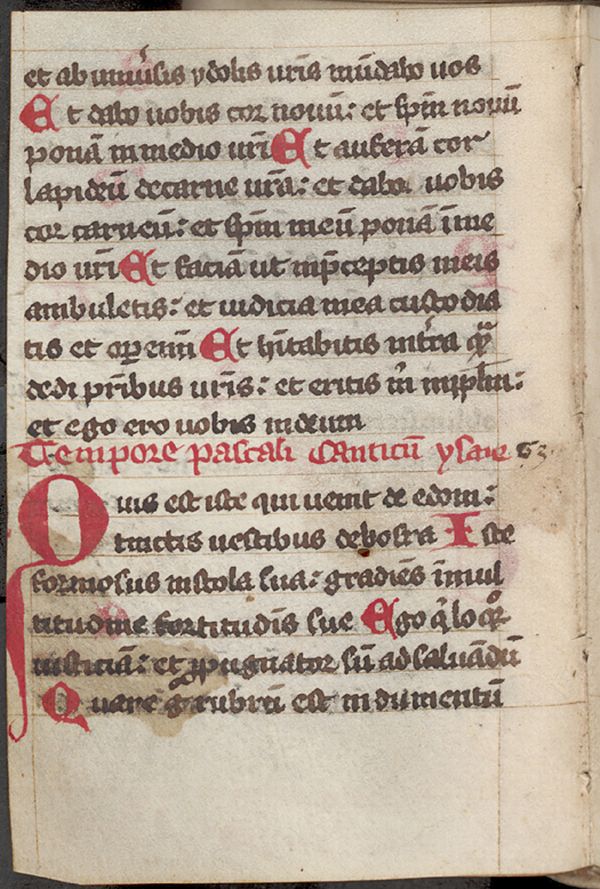 et ab uniu͛sis ydolis ur̄is mūdabo uos
Et dabo uobis cor nouū: et sp̄m nouū
ponā in medio ur̄i Et auferā cor
lapideū de carne ur̄a: et dabo uobis
cor carneū: et sp̄m meū ponā ī me
dio ur̄i Et faciā ut in p̄ceptis meis
ambuletis: et iudicia mea custodia
tis et operemī Et hītabitis in tr̄a quā
dedi pr̄ibus ur̄is: et eritis m̄ in pl̄m:
et ego ero uobis in deum
Tempore pascali Canticū ysaie 63
Quis est iste qui uenit de edom:
tinctis uestibus de bosra Iste
formosus in stola sua: gradiēs ī mul
titudine fortitudīs sue Ego qͥ loqͦr
iusticiā: et ꝓpugnator sū ad saluādū
Quare gͦ rubrū est indumentū